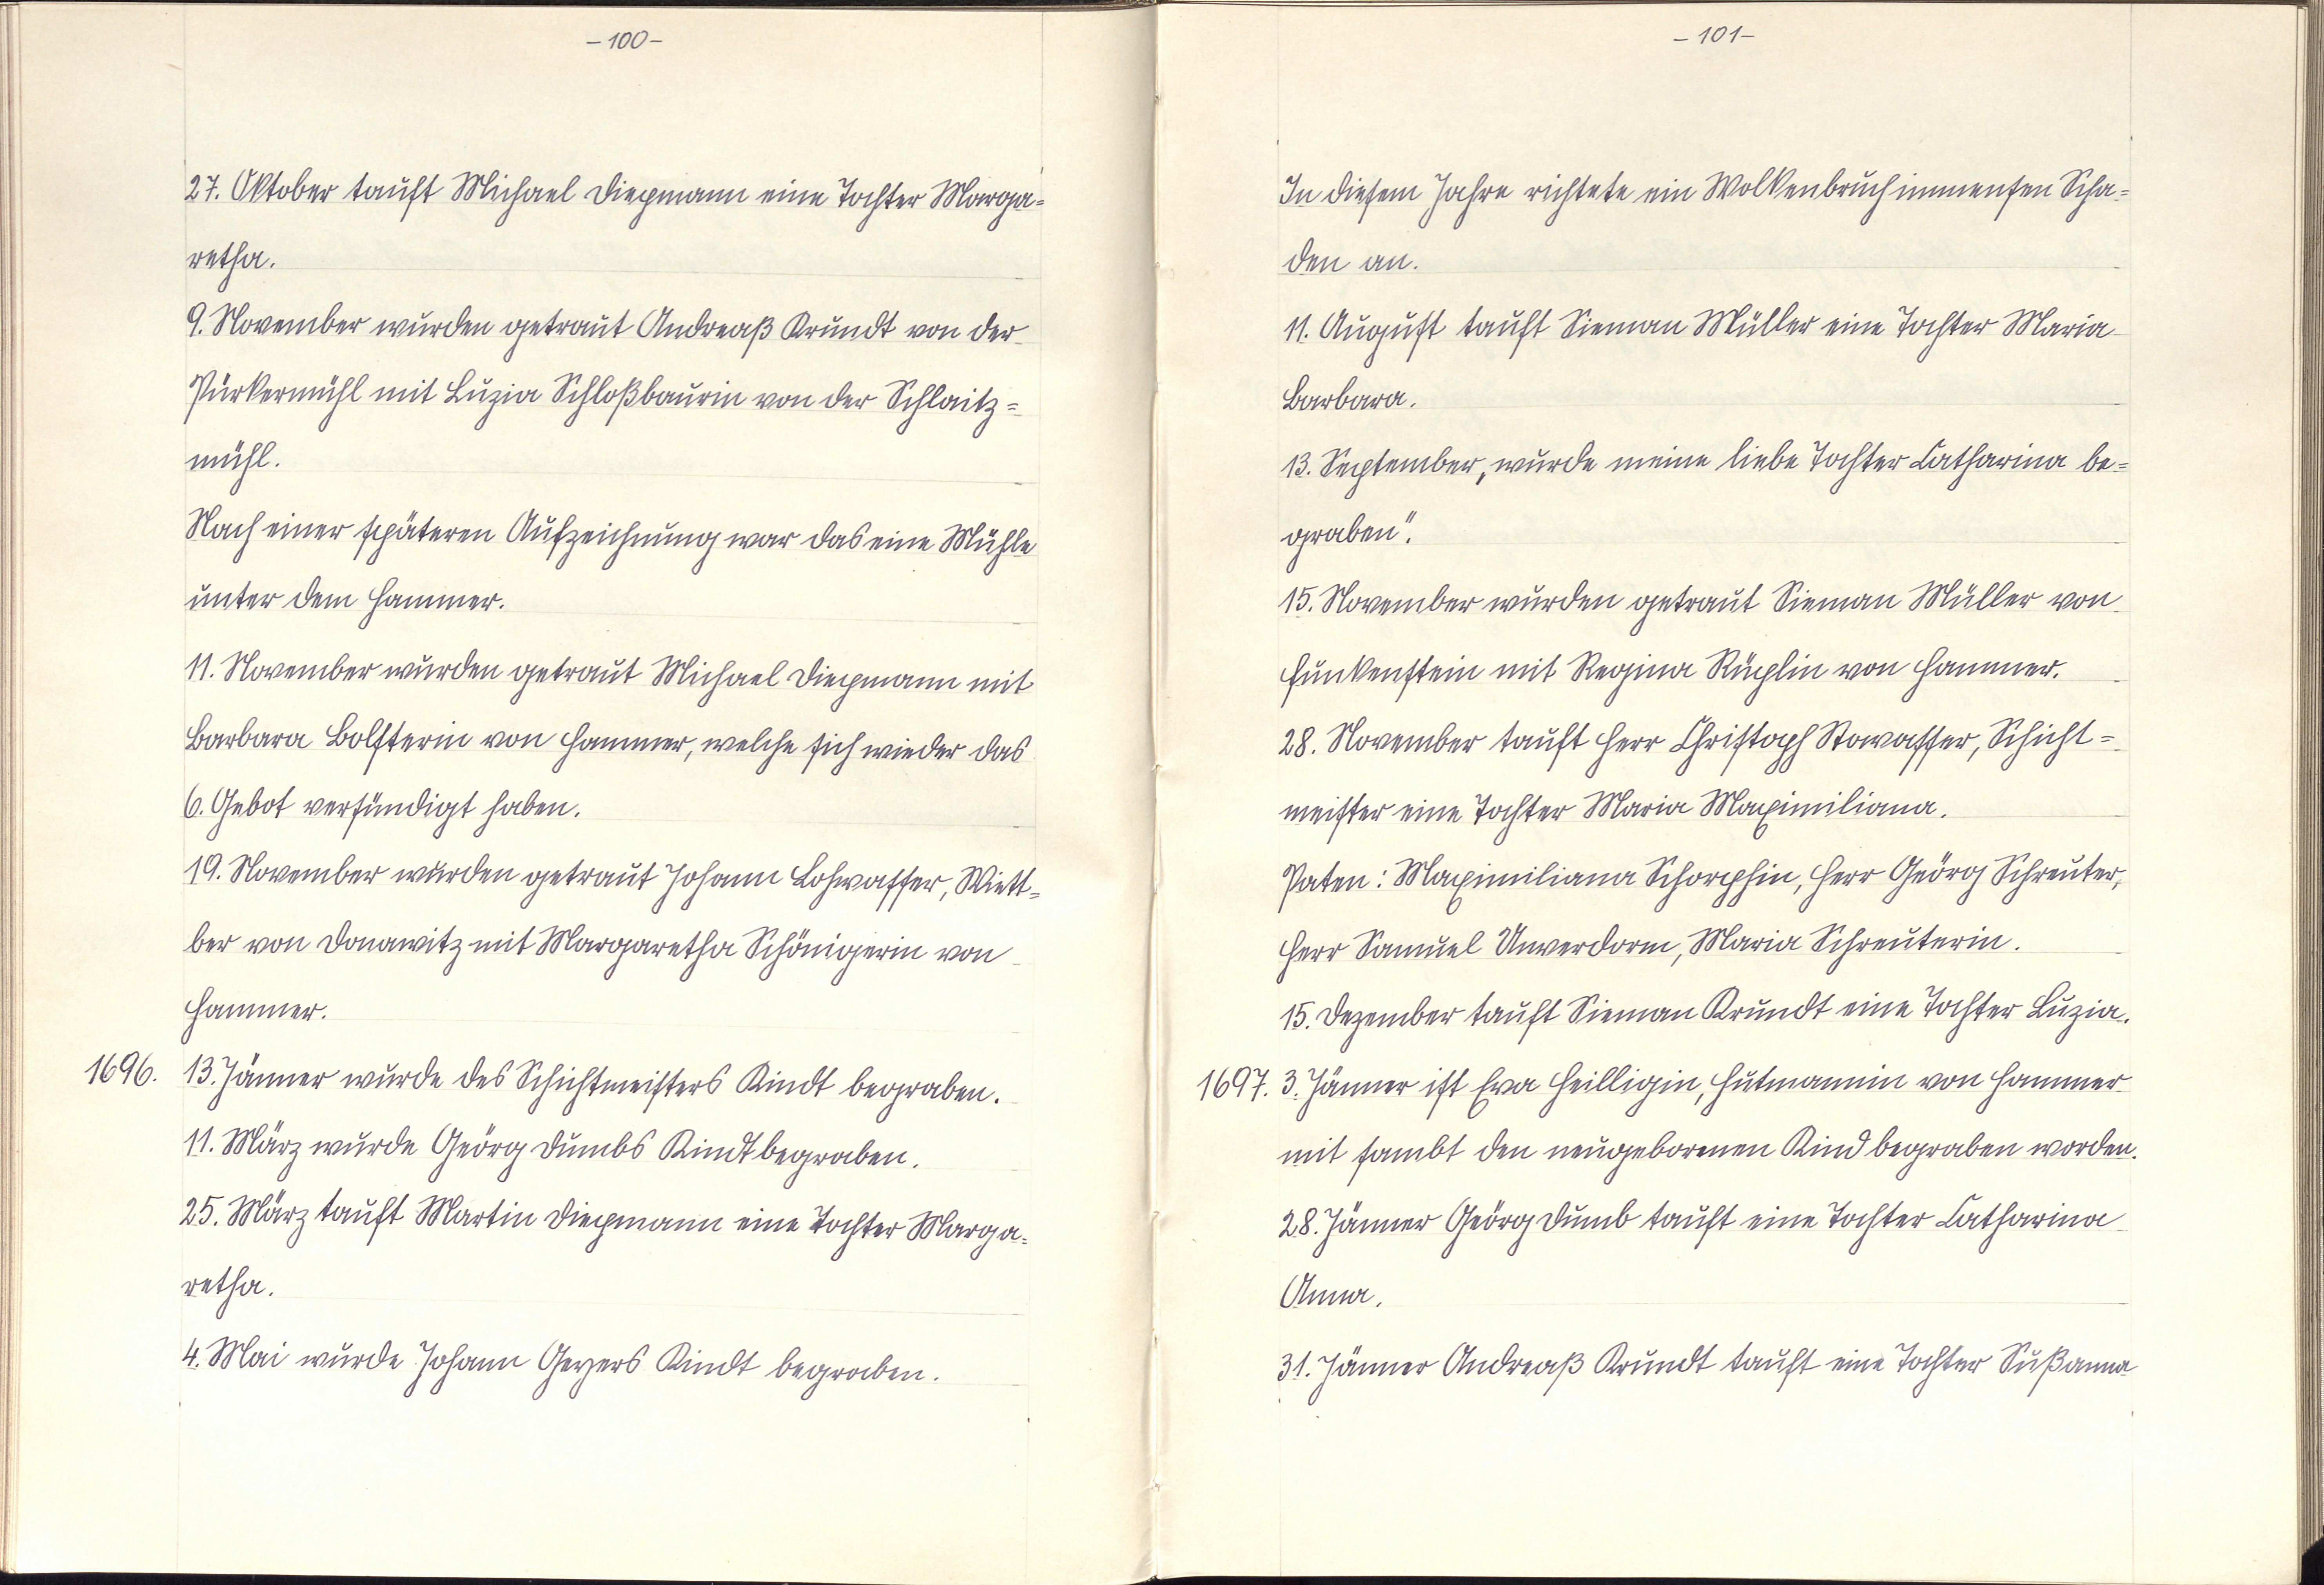 -100-
27. Oktober tauft Michael Diepmann eine Tochter Marga=
retha.
9. November wurden getraut Andreaß Krundt von der
Pürkermühl mit Luzia Schloßbaurin von der Schlaitz=
mühl.
Nach einer späteren Aufzeichnung war das eine Mühle
unter dem Hammer.
11. November wurden getraut Michael Diepmann mit
Barbara Bolfterin von Hammer, welche sich wieder das
6. Gebot versündigt haben.
19. November wurden getraut Johann Lohwasser, Wiett=
ber von Donawitz mit Margaretha Schönigerin von
Hammer.
1696. 13. Jänner wurde des Schichtmeisters Kindt begraben.
11. März wurde Geörg Dumbs Kindt begraben.
25. März tauft Martin Diepmann eine Tochter Marga=
retha.
4. Mai wurde Johann Geyers Kindt begraben.
-101-
In diesem Jahre richtete ein Wolkenbruch immensen Scha=
den an.
11. August tauft Sieman Müller eine Tochter Maria
Barbara.
13. September „wurde meine liebe Tochter Catharina be=
graben".
15. November wurden getraut Sieman Müller von
Funkenstein mit Regina Rüplin von Hammer.
28. November tauft Herr Christoph Stowasser, Schicht=
meister eine Tochter Maria Maximiliana.
Paten: Maximiliana Schorphin, Herr Geörg Schreuter,
Herr Samuel Unverdorm, Maria Schreuterin.
15. Dezember tauft Sieman Krundt eine Tochter Luzia.
1697. 3. Jänner ist Eva Heilligin, Hutmannin von Hammer
mit sambt den neugeborenen Kind begraben worden.
28. Jänner Geörg Dumb tauft eine Tochter Catharina
Anna.
31. Jänner Andreaß Krundt tauft eine Tochter Sußanna